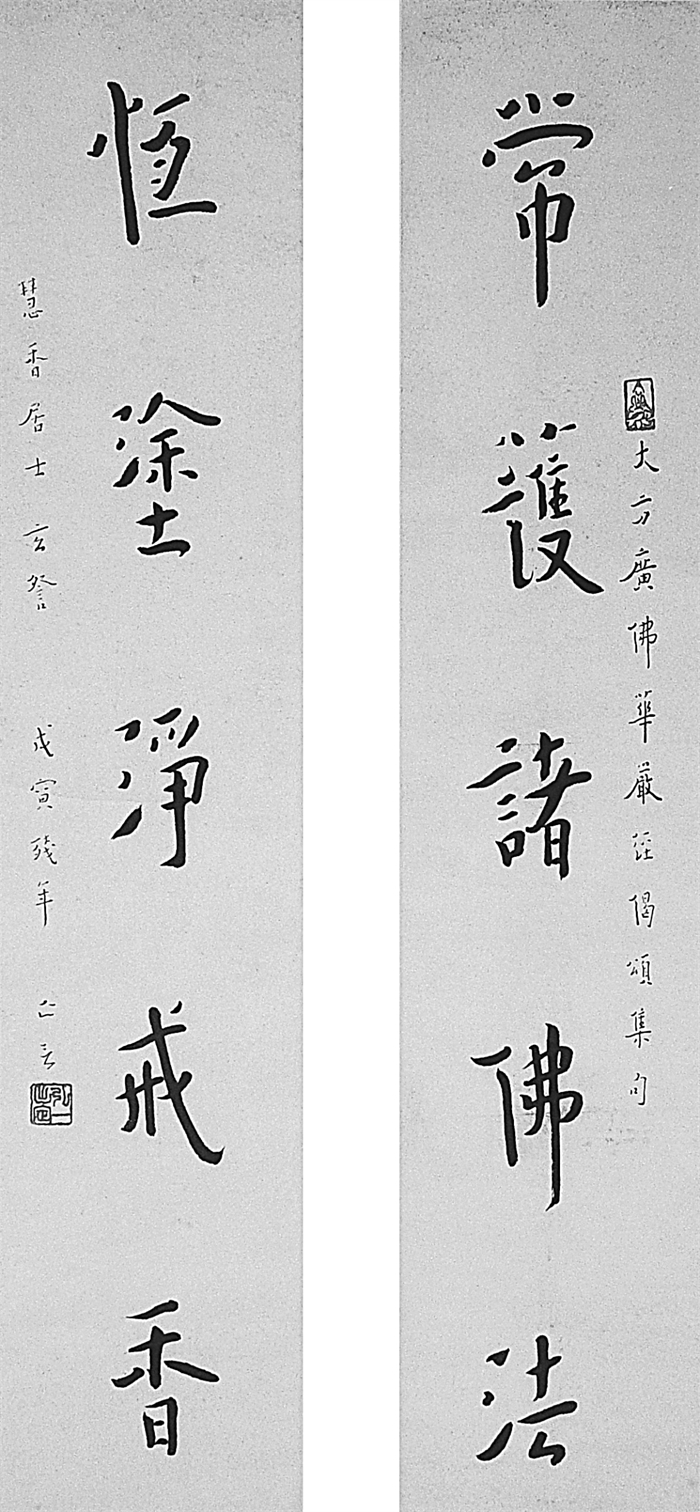 大方廣佛華嚴經偈頌集句
常護諸佛法
恆塗淨戒香
慧香居士玄詧 戊寅殘年 亡言